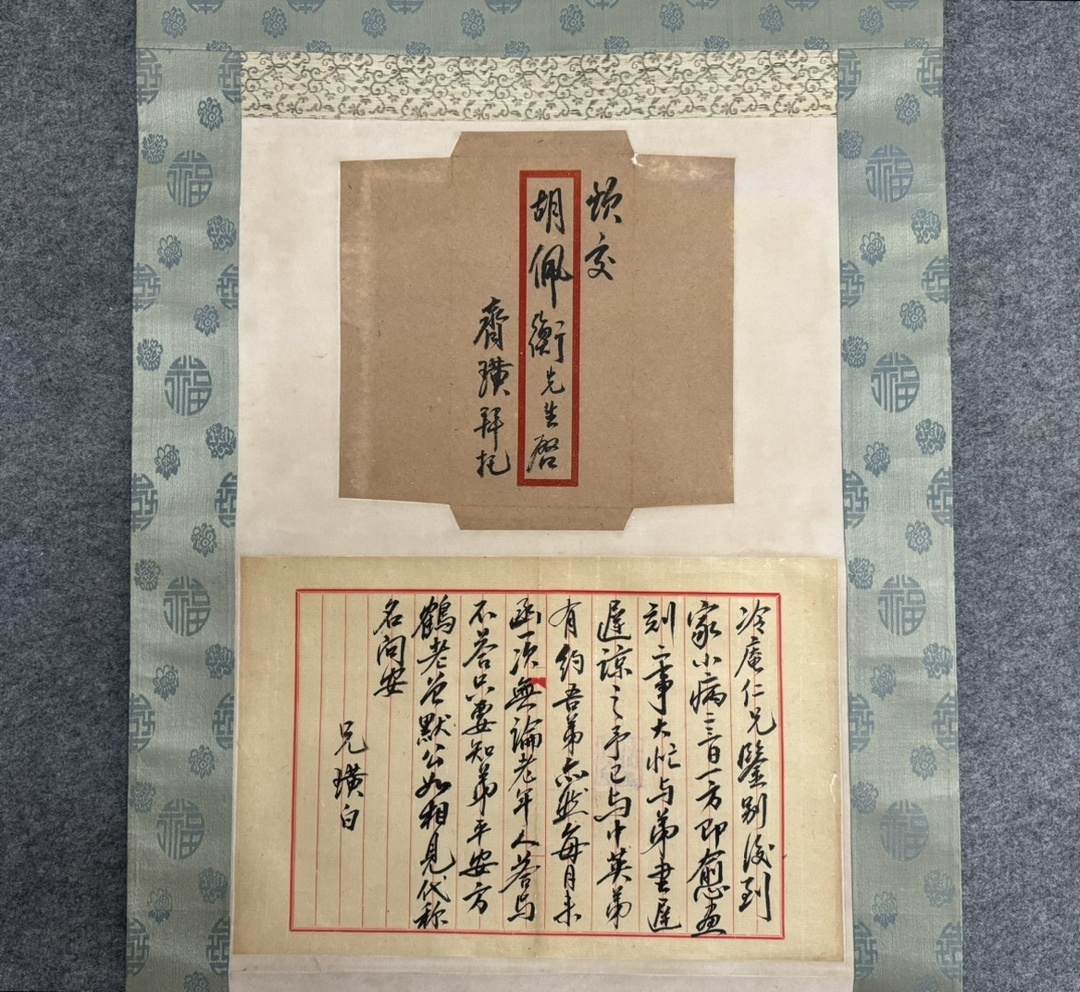 烦交
胡佩衡先生启
齊璜拜托
冷庵仁兄鑒别後到
家小病三日一方即愈画
刻之事大忙与弟書遲
遲諒之予已与中英弟
有約吾弟亦然每月来
函一次無論老年人荅与
不荅只要知弟平安方
鶴老 默公如相見代称
名问安
兄璜白